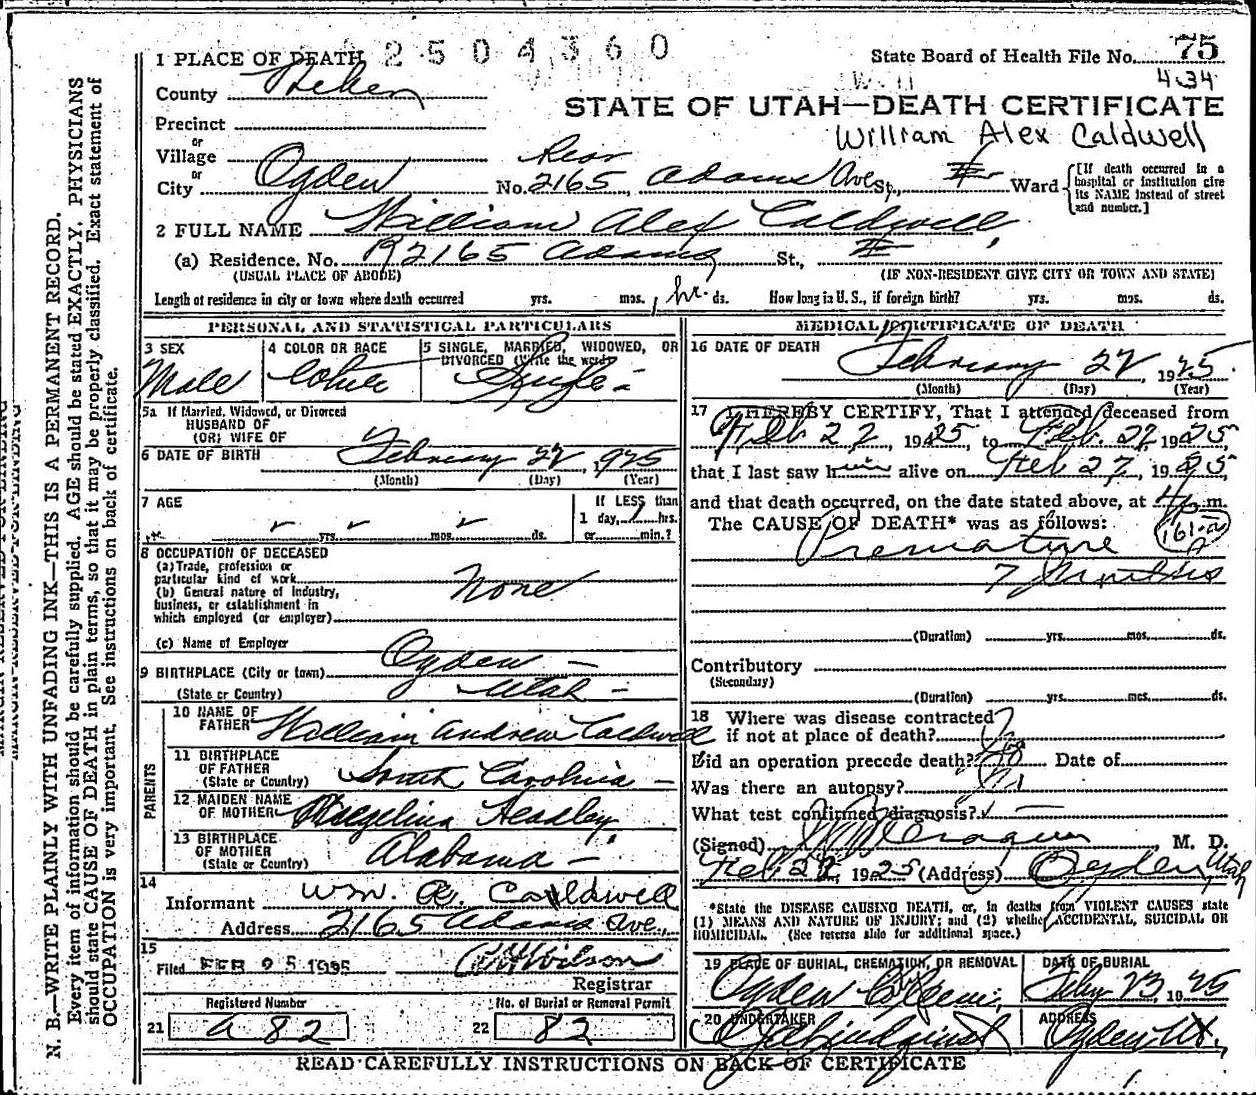 1 PLACE OF DEATH 2504360 State Board of Health File No. 75
County Weber 434
STATE OF UTAH—DEATH CERTIFICATE
Precinct William Alex Caldwell
or
Village Rear
or
City Ogden No. 2165 Adams Ave St., Ward [If death occurred in a hospital or institution give its NAME instead of street and number.]
2 FULL NAME William Alex Caldwell
(a) Residence. No. R2165 Adams St.,
(USUAL PLACE OF ABODE) (IF NON-RESIDENT GIVE CITY OR TOWN AND STATE)
Length of residence in city or town where death occurred yrs. mos. 1 hr. ds. How long in U. S., if foreign birth? yrs. mos. ds.
PERSONAL AND STATISTICAL PARTICULARS
3 SEX 4 COLOR OR RACE 5 SINGLE, MARRIED, WIDOWED, OR
DIVORCED (Write the word)
Male White Single -
5a If Married, Widowed, or Divorced
HUSBAND OF
(OR) WIFE OF
6 DATE OF BIRTH February 22, 1925
(Month) (Day) (Year)
7 AGE If LESS than
1 day, 1 hrs.
yrs. mos. ds. or min.?
8 OCCUPATION OF DECEASED
(a) Trade, profession or
particular kind of work
(b) General nature of industry, None
business, or establishment in
which employed (or employer)
(c) Name of Employer
9 BIRTHPLACE (City or town) Ogden -
(State or Country) Utah -
PARENTS
10 NAME OF
FATHER William Andrew Caldwell
11 BIRTHPLACE
OF FATHER South Carolina -
(State or Country)
12 MAIDEN NAME
OF MOTHER Headley
13 BIRTHPLACE
OF MOTHER Alabama -
(State or Country)
14
Informant Wm. A. Caldwell
Address 2165 Adams Ave.,
15
Filed FEB 25 1925 Wilson
Registrar
Registered Number No. of Burial or Removal Permit
21 A 82 22 82
MEDICAL CERTIFICATE OF DEATH
16 DATE OF DEATH February 22, 1925.
(Month) (Day) (Year)
17 I HEREBY CERTIFY, That I attended deceased from
Feb 22, 1925, to Feb. 22, 1925
that I last saw him alive on Feb 22, 1925,
and that death occurred, on the date stated above, at m.
The CAUSE OF DEATH* was as follows: 161-a
Premature
7 Months
(Duration) yrs. mos. ds.
Contributory
(Secondary)
(Duration) yrs. mos. ds.
18 Where was disease contracted
if not at place of death?
Did an operation precede death? No Date of
Was there an autopsy? No
What test confirmed diagnosis?
(Signed) M. D.
Feb 22, 1925 (Address) Ogden, Utah
*State the DISEASE CAUSING DEATH, or, in deaths from VIOLENT CAUSES state
(1) MEANS AND NATURE OF INJURY; and (2) whether ACCIDENTAL, SUICIDAL OR
HOMICIDAL. (See reverse side for additional space.)
19 PLACE OF BURIAL, CREMATION, OR REMOVAL DATE OF BURIAL
Ogden Feby 23, 1925
20 UNDERTAKER ADDRESS
Ogden Ut.,
READ CAREFULLY INSTRUCTIONS ON BACK OF CERTIFICATE
N. B.—WRITE PLAINLY WITH UNFADING INK—THIS IS A PERMANENT RECORD.
Every item of information should be carefully supplied. AGE should be stated EXACTLY. PHYSICIANS
should state CAUSE OF DEATH in plain terms, so that it may be properly classified. Exact statement of
OCCUPATION is very important. See instructions on back of certificate.